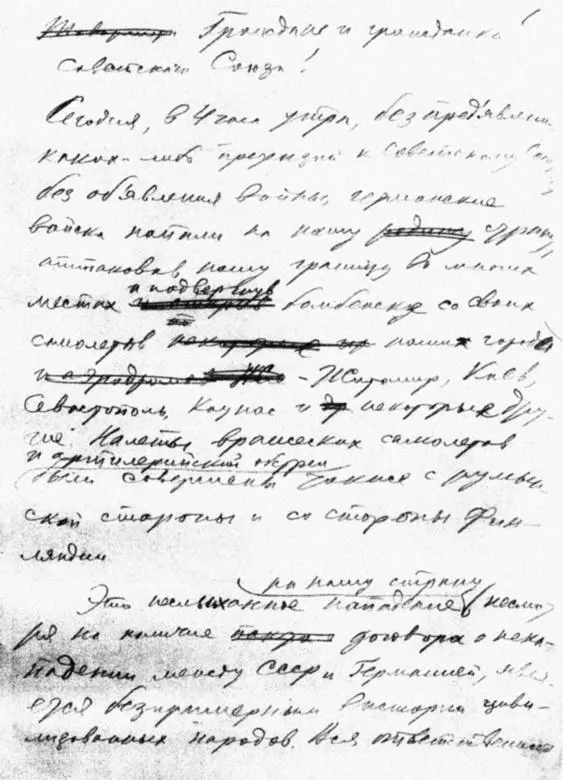 ~~Товарищи~~ Граждане и гражданки!
Советского Союза!
Сегодня, в 4 часа утра, без предъявлен.
каких-либо претензий к Советскому Сою.
без объявления войны, германские
войска напали на нашу ~~родину~~ страну,
аттаковав нашу границу во многих
и подвергнув
местах бомбежке со своих
самолетов наших города
- Житомир, Киев,
Севастополь, Каунас и ~~др~~ некоторые дру-
гие. Налеты вражеских самолетов
и артилерийский обстрел
были совершены также с румын-
ской стороны и со стороны Фин-
ляндии
на нашу страну
Это неслыханное нападение, несмот-
ря на наличие договора о нена-
падении между СССР и Германией, явл-
ется безпримерным в истории циви-
лизованных народов. Вся ответственно